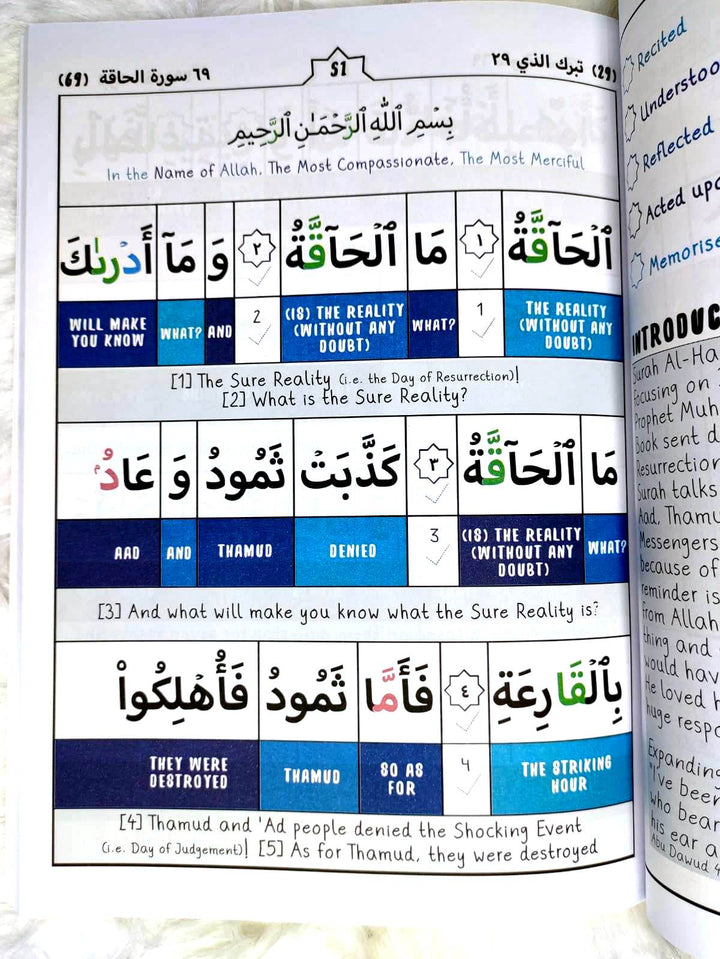 (69) ٦٩ سورة الحاقة
51
(29) تبرك الذي ٢٩
بِسْمِ ٱللَّهِ ٱلرَّحْمَـٰنِ ٱلرَّحِيمِ
In the Name of Allah, The Most Compassionate, The Most Merciful
ٱلْحَآقَّةُ ١ مَا ٱلْحَآقَّةُ ٢ وَ مَآ أَدْرَىٰكَ
WILL MAKE YOU KNOW
WHAT?
AND
2
(IS) THE REALITY (WITHOUT ANY DOUBT)
WHAT?
1
THE REALITY (WITHOUT ANY DOUBT)
[1] The Sure Reality (i.e. the Day of Resurrection)!
[2] What is the Sure Reality?
مَا ٱلْحَآقَّةُ ٣ كَذَّبَتْ ثَمُودُ وَ عَادُۢ
AAD
AND
THAMUD
DENIED
3
(IS) THE REALITY (WITHOUT ANY DOUBT)
WHAT?
[3] And what will make you know what the Sure Reality is?
بِٱلْقَارِعَةِ ٤ فَأَمَّا ثَمُودُ فَأُهْلِكُوا۟
THEY WERE DESTROYED
THAMUD
SO AS FOR
4
THE STRIKING HOUR
[4] Thamud and 'Ad people denied the Shocking Event
(i.e. Day of Judgement)! [5] As for Thamud, they were destroyed
Recited
Reflected
Acted
INTRODUC
Surah Al-Ha
Focusing on
Prophet Muh
Book sent d
Resurrection
Surah talks
Aad, Thamu
Messengers
because of
reminder is
From Allah
thing and
would hav
He loved h
huge respo
Expanding
"I've been
who bear
his ear a
Abu Dawud 4